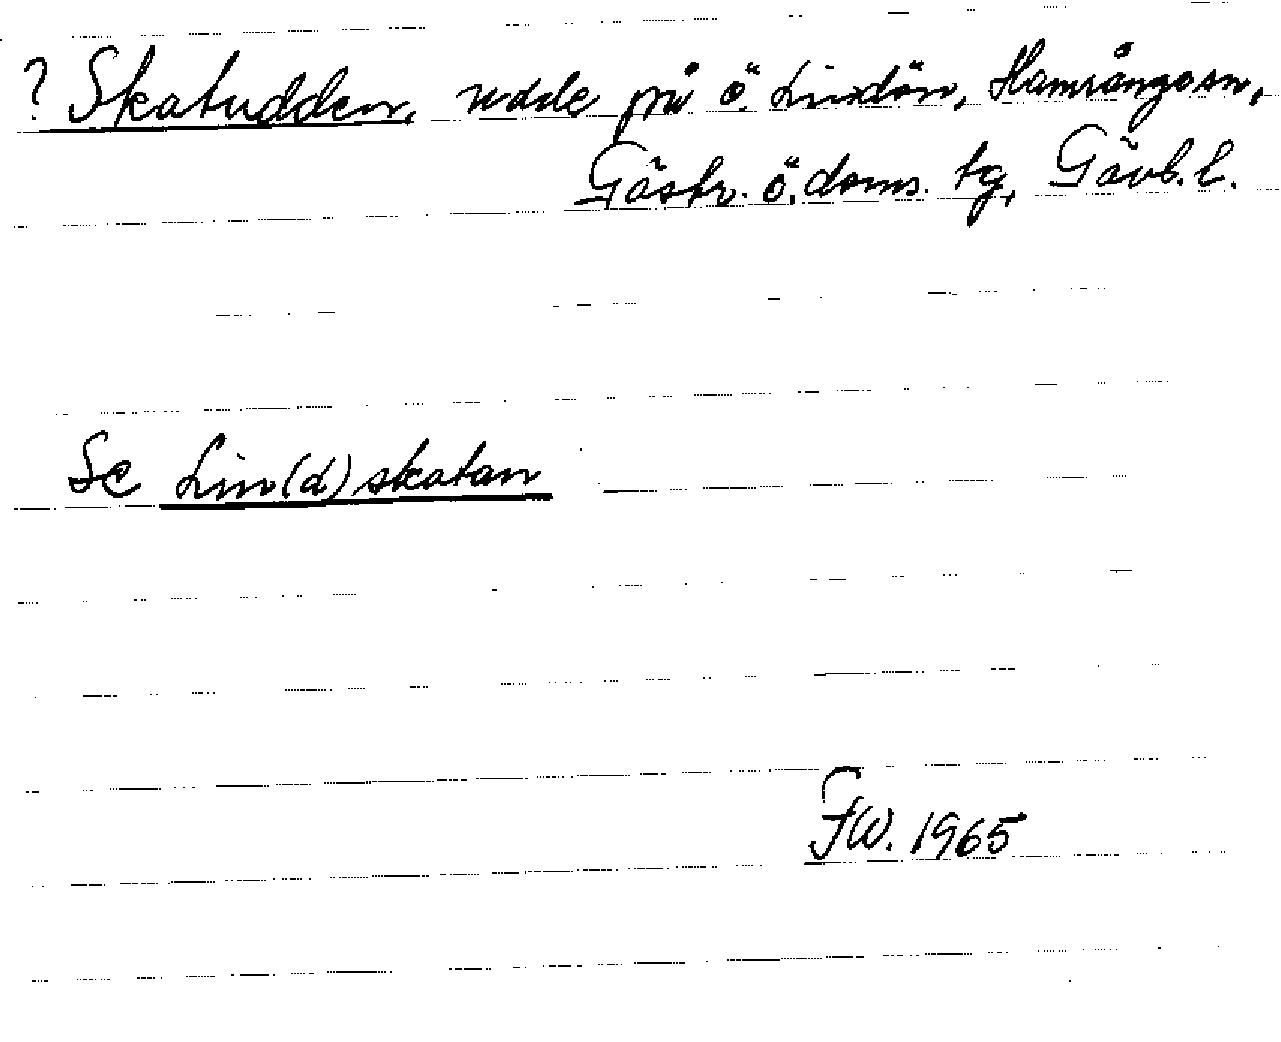 ? Skatudden, udde på Ö. Lindön, Hamrångosn,
Gästr. ö. doms. tg, Gävb. l.
Se Lin(d)skatan
FW. 1965